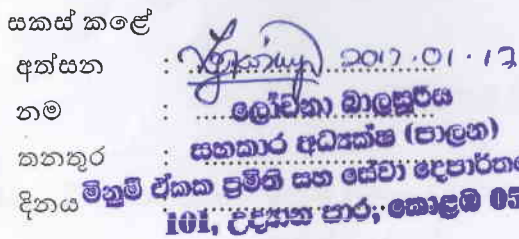 සකස් කළේ
අත්සන : 2017.01.17
නම : ලෝචනා බාලසූරිය
තනතුර : සහකාර අධ්‍යක්ෂ (පාලන)
දිනය මිනුම් ඒකක ප්‍රමිති සහ සේවා දෙපාර්තමේ
101, උද්‍යාන පාර, කොළඹ 05